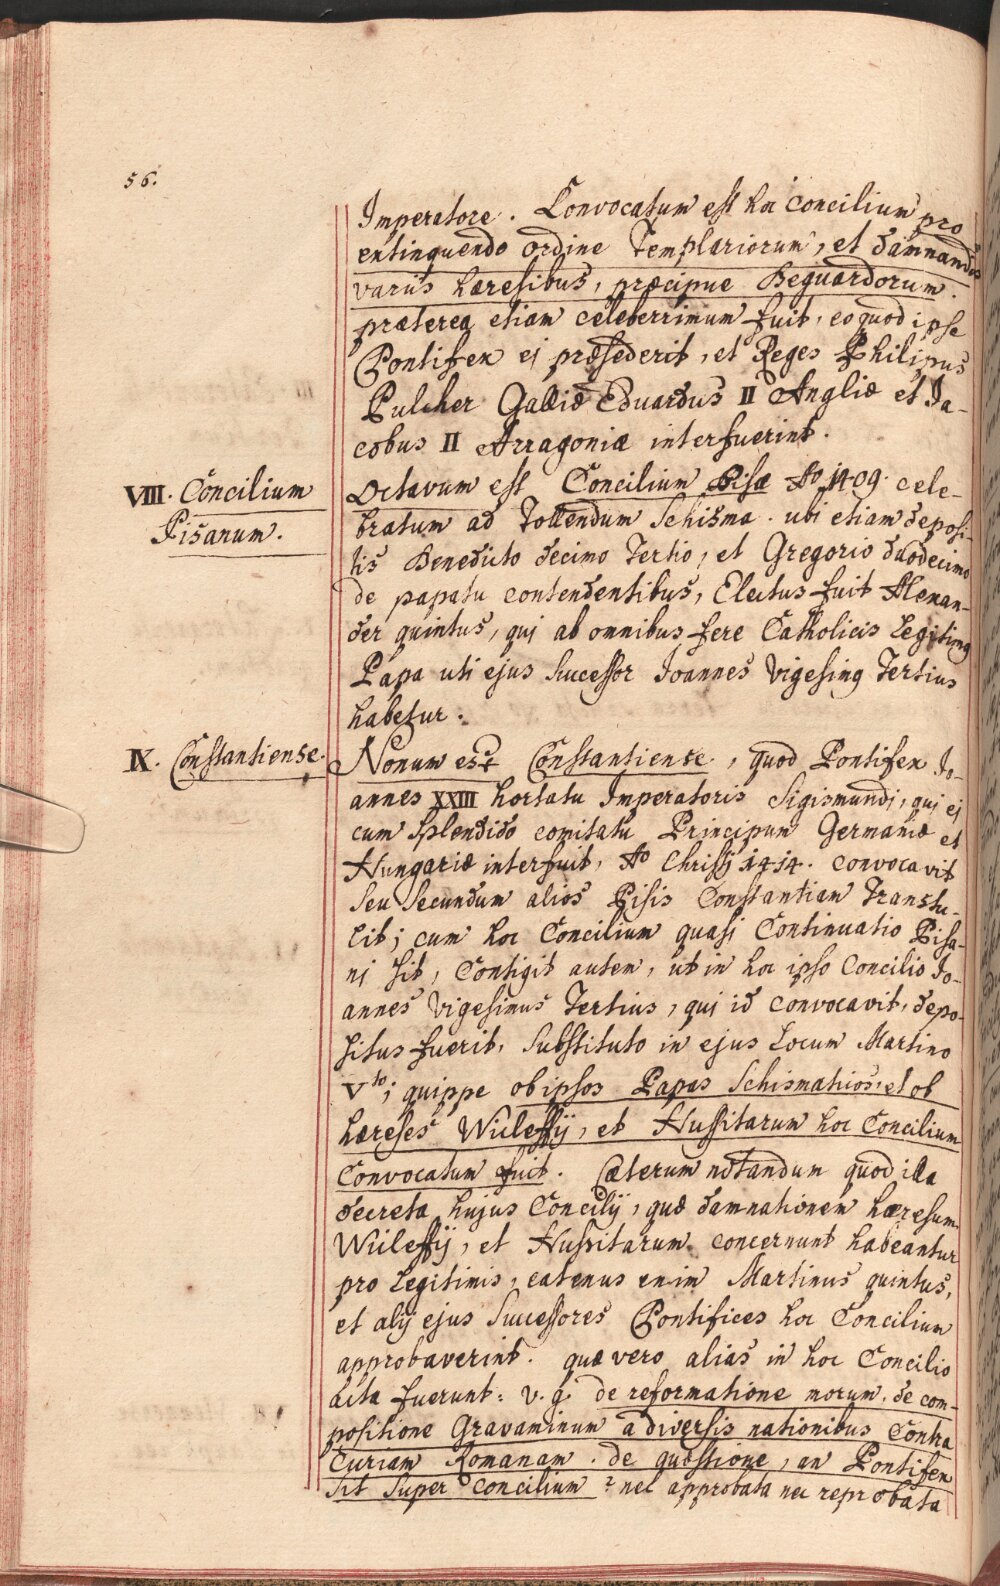 56.
Imperatore. Convocatum est hoc Concilium pro
extinquendo ordine Templariorum, et damnandis
variis hæresibus, præcipue Beguardorum.
præterea etiam celeberrimum fuit, eo quod ipse
Pontifex ej præsederit, et Reges Philipus
Pulcher Galliæ Eduardus II Angliæ et Ja-
cobus II Arragoniæ interfuerint.
VIII. Concilium
Pisanum.
Octavum est Concilium Pisæ Aº 1409. cele-
bratum ad Tollendum Schisma. ubi etiam deposi-
tis Benedicto decimo Tertio, et Gregorio duodecimo
de papatu contendentibus, Electus fuit Alexan-
der quintus, quj ab omnibus fere Catholicis Legitimg
Papa uti ejus Successor Joannes Vigesimg Tertius
habetur.
IX. Constantiense.
Nonum est Constantiense, quod Pontifex Jo-
annes XXIII hortatu Imperatoris Sigismundj, quj ej
cum Splendido comitatu Principum Germaniæ et
Hungariæ interfuit, Aº Christj 1414. convocavit
Seu Secundum alios Pisis Constantiam Transtu-
lit; cum hoc Concilium quasi Continuatio Pisa-
nj sit, Contigit autem, ut in hoc ipso Concilio Jo-
annes Vigesimus Tertius, quj id convocavit, depo-
situs fuerit, Substituto in ejus Locum Martino
Vto; quippe ob ipsos Papas Schismaticos, et ob
hæreses Wicleffij, et Hussitarum hoc Concilium
Convocatum fuit. Cæterum notandum quod illa
decreta hujus Concilij, quæ damnationem hæresum
Wicleffij, et Hussitarum concernunt habeantur
pro Legitimis, eatenus enim Martinus quintus,
et alij ejus Successores Pontifices hoc Concilium
approbaverint. quæ vero alias in hoc Concilio
acta fuerunt: v. g. de reformatione morum, de com-
positione Gravaminum a diversis nationibus Contra
Curiam Romanam. de quæstione, an Pontifex
sit Super Concilium? nec approbata nec reprobata